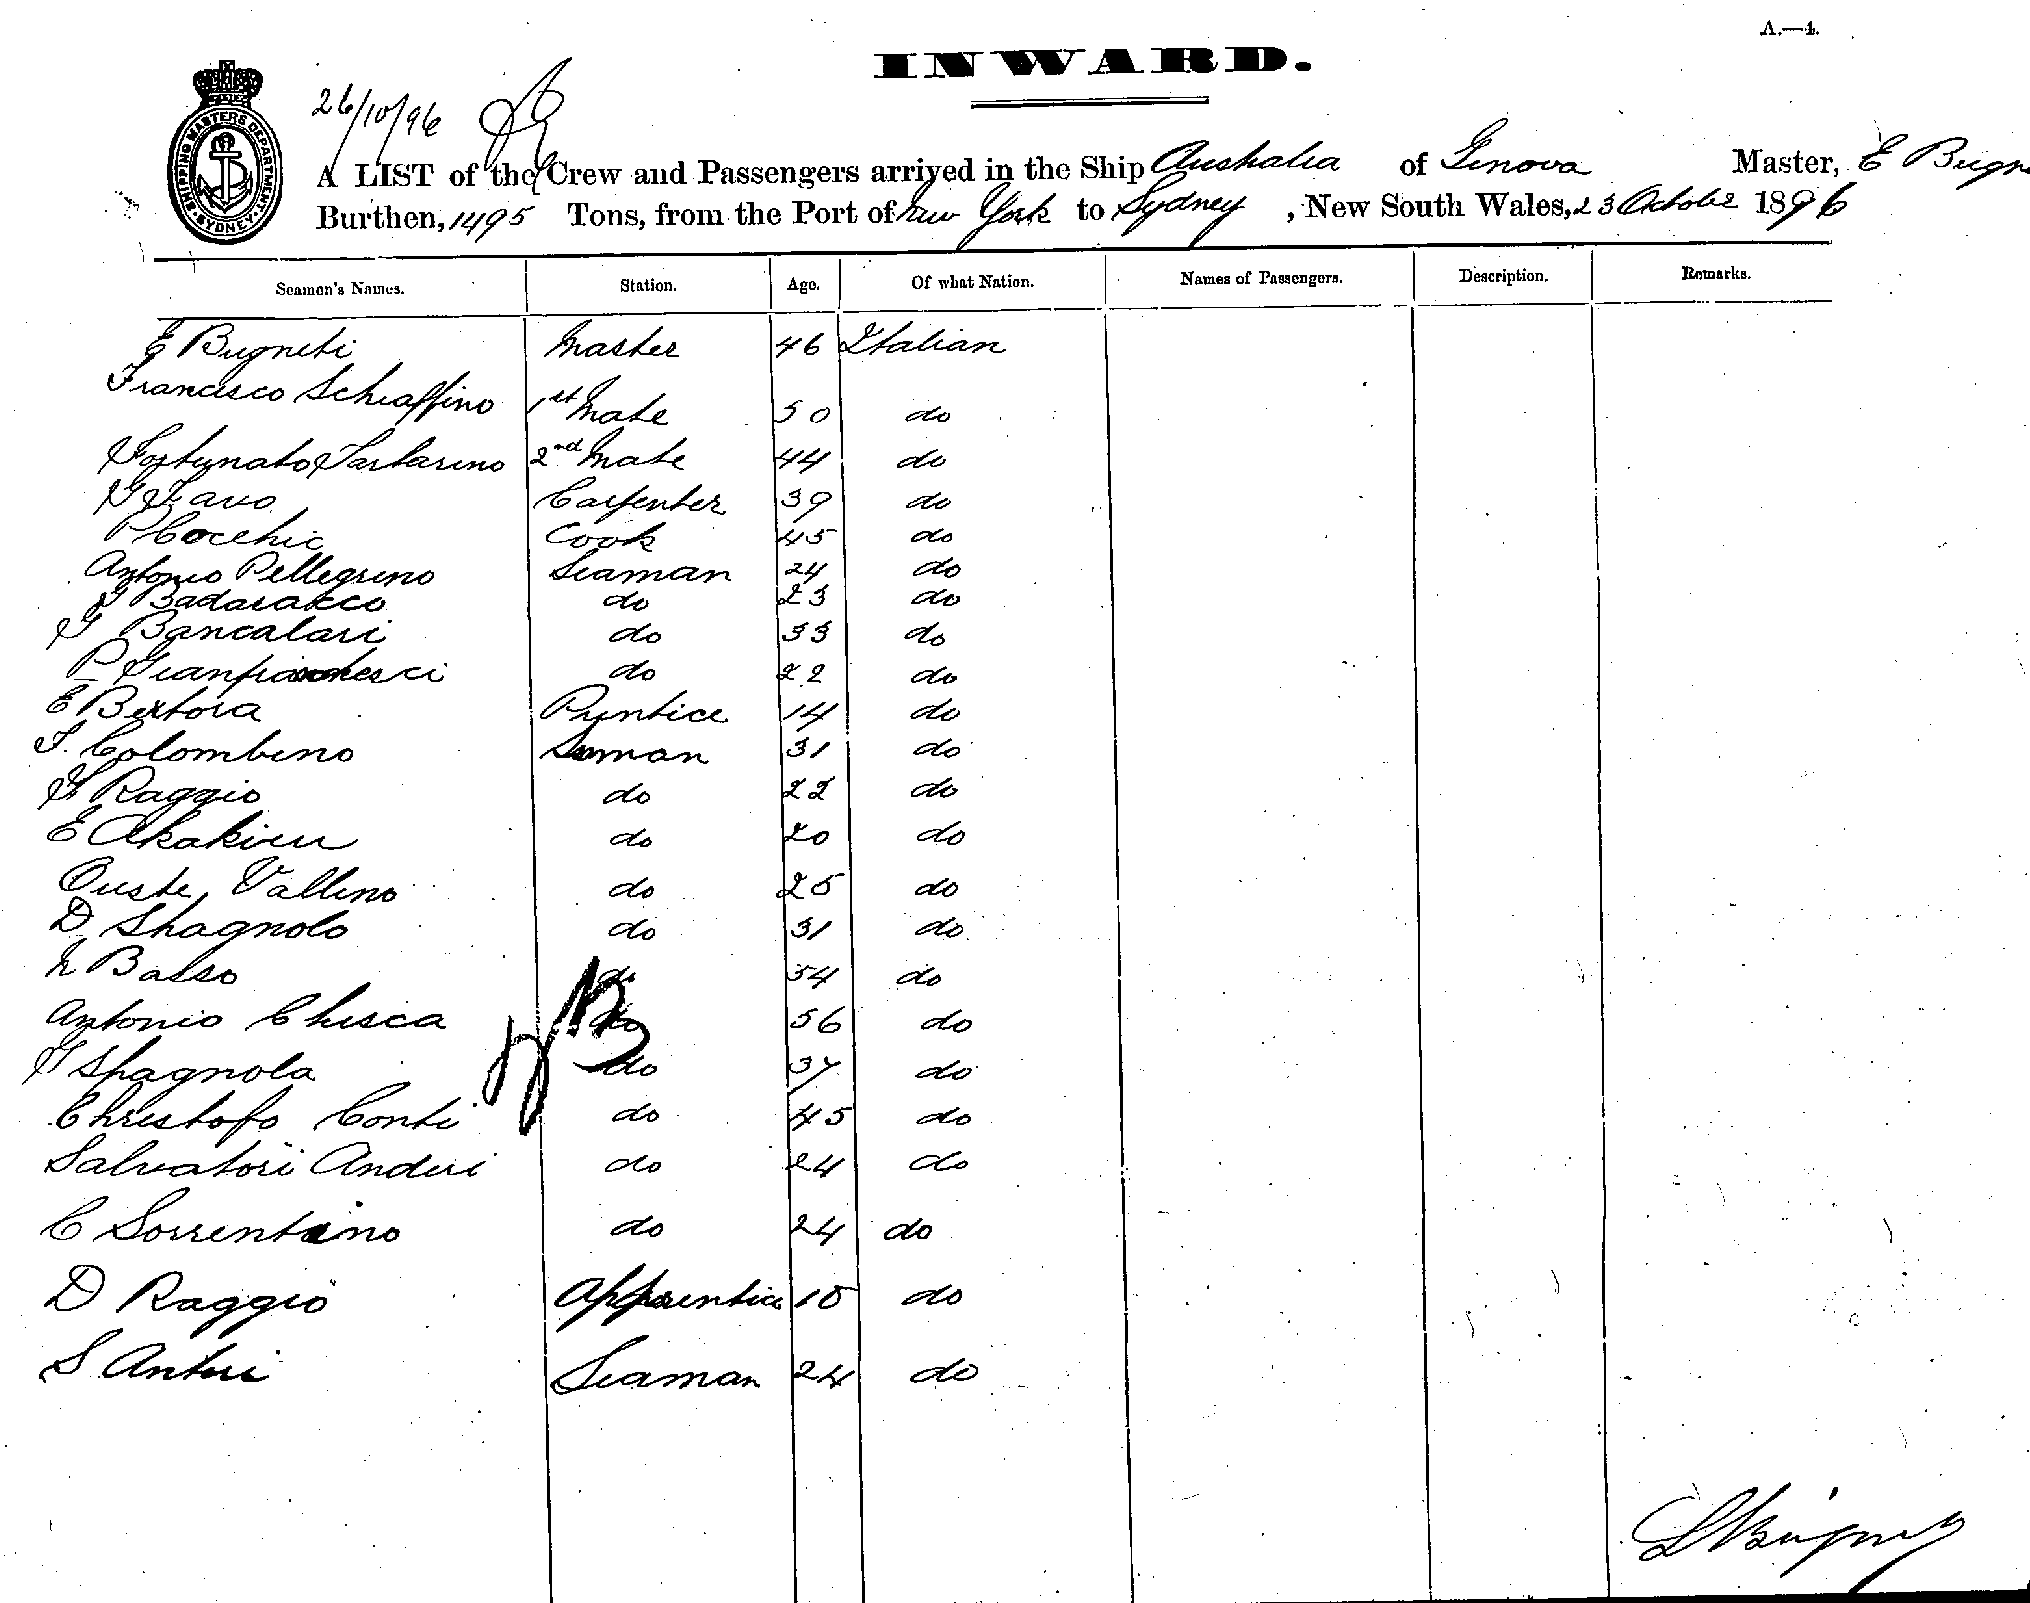 A.—4.
INWARD.
26/10/96
SHIPPING MASTERS DEPARTMENT SYDNEY
A LIST of the Crew and Passengers arrived in the Ship Australia of Genova Master, E Bugn
Burthen, 1495 Tons, from the Port of New York to Sydney, New South Wales, 23 October 1896
Seamen's Names. Station. Age. Of what Nation. Names of Passengers. Description. Remarks.
E Bugneti Master 46 Italian
Francisco Schiaffino 1st Mate 50 do
Fortunato Tartarino 2nd Mate 44 do
Carpenter 39 do
P Cocchic Cook 45 do
Antonio Pellegrino Seaman 24 do
G Badaracco do 23 do
G Bancalari do 33 do
P Gianfrancesci do 22 do
E Bertora Prentice 14 do
F. Colombino Seman 31 do
G Raggio do 22 do
E Akakieu do 20 do
Oreste Vallino do 25 do
D Spagnolo do 31 do
Basso do 34 do
Antonio Chisca do 56 do
G Spagnola do 37 do
Christofo Conti do 45 do
Salvatori Anderi do 24 do
C Sorrentino do 24 do
D Raggio Apprentice 15 do
S Anteri Seaman 24 do